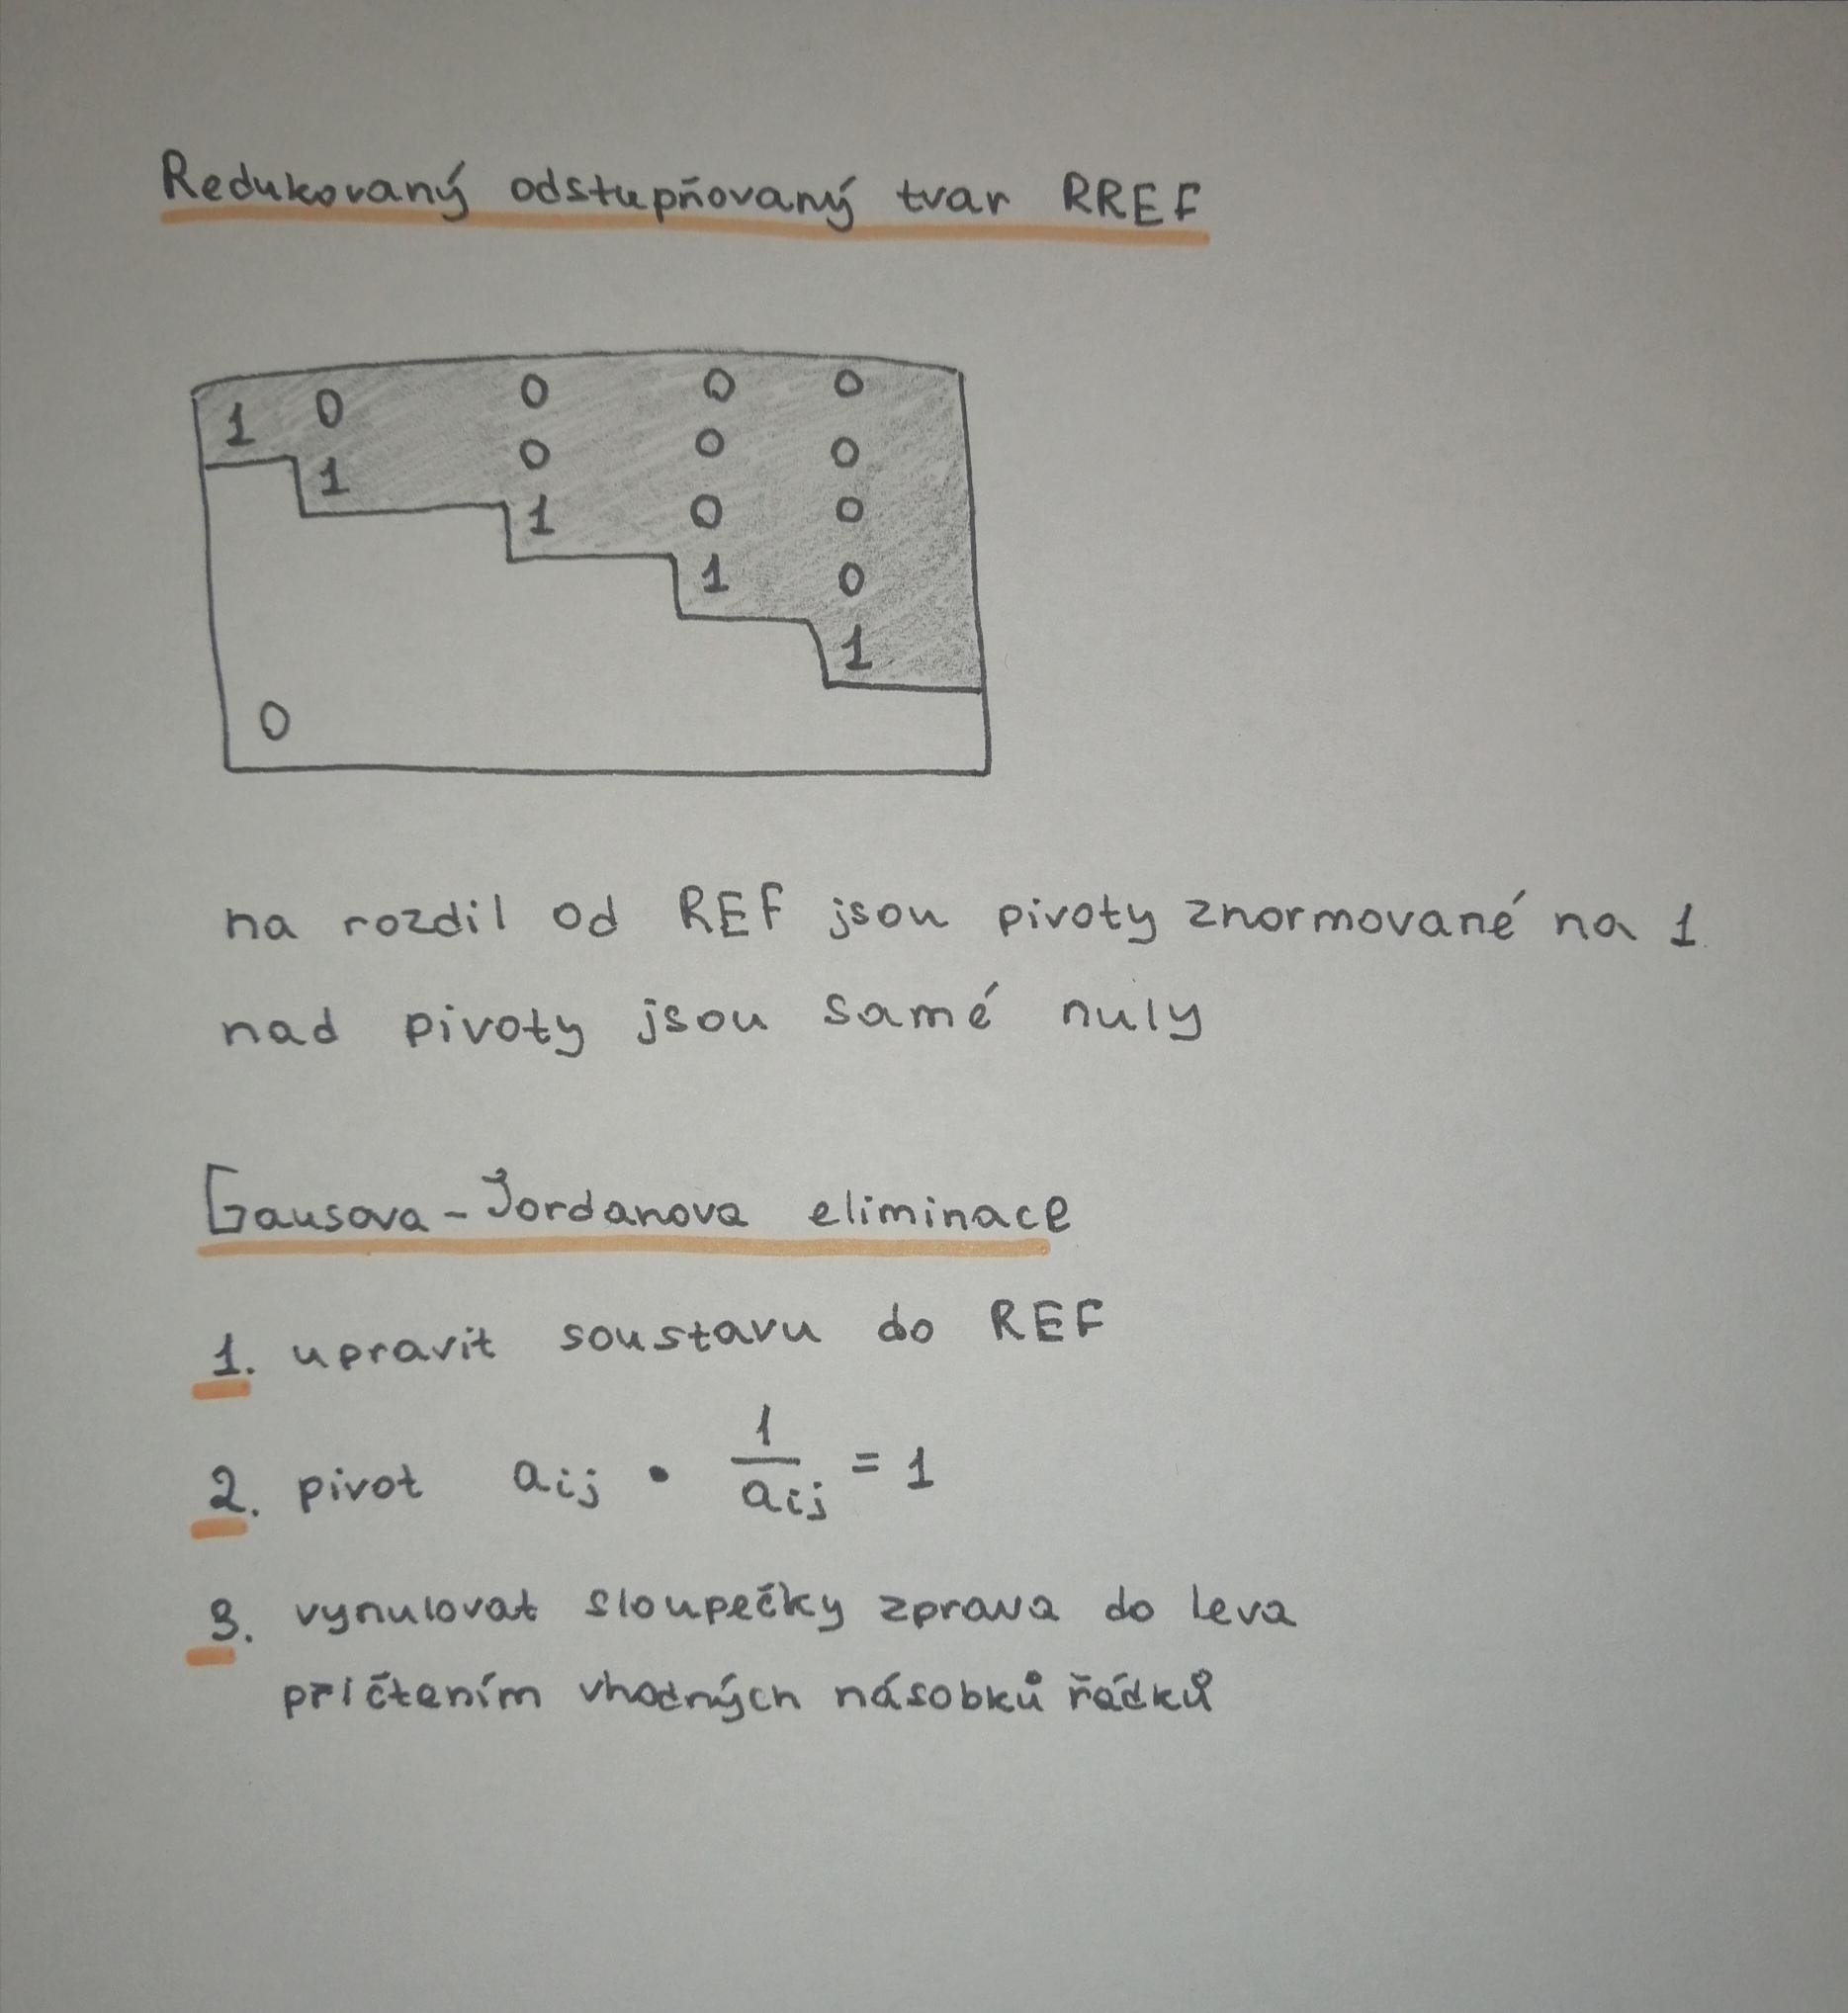 Redukovaný odstupňovaný tvar RREF
1 0 0 0 0
1 0 0 0
1 0 0
1 0
1
0
na rozdil od REF jsou pivoty znormované na 1
nad pivoty jsou samé nuly
Gausova-Jordanova eliminace
1. upravit soustavu do REF
2. pivot aij • 1/aij = 1
3. vynulovat sloupečky zprava do leva
přičtením vhodných násobků řádků